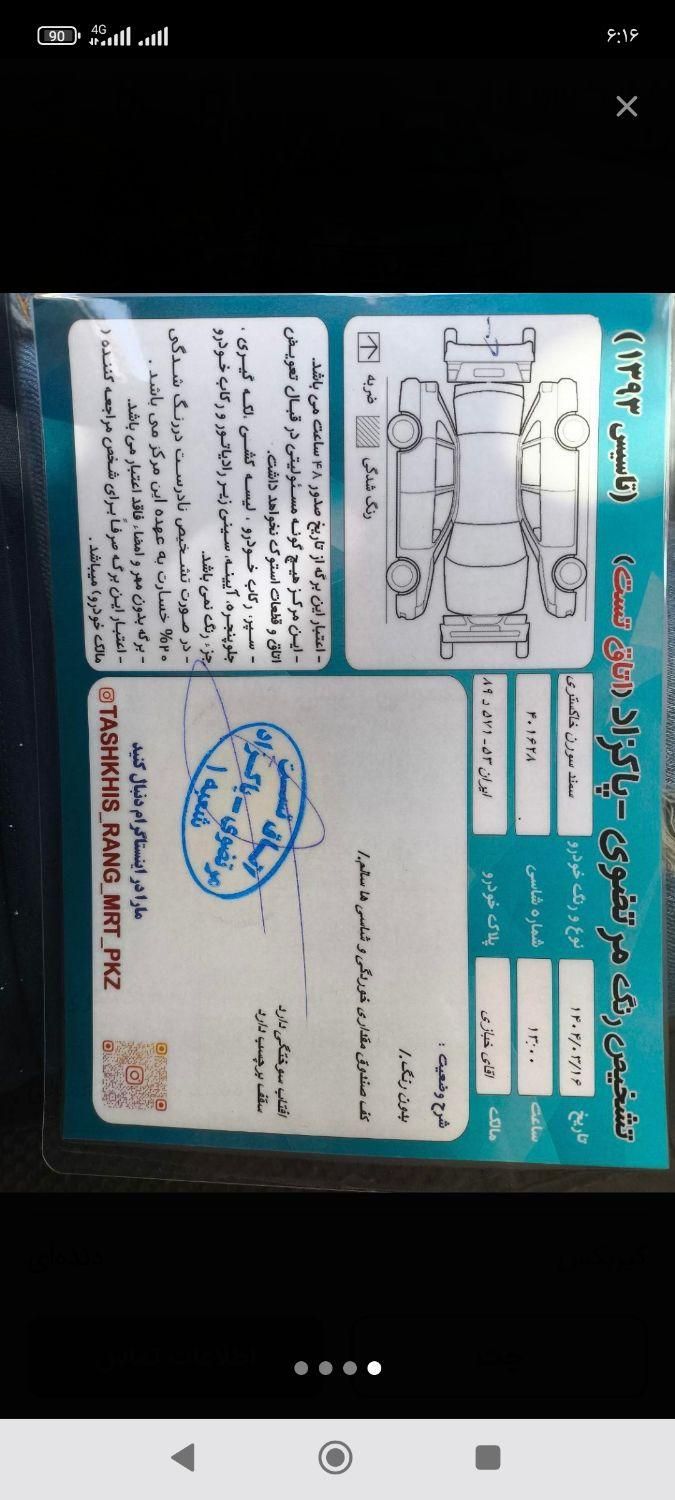 ۶:۱۶
4G
90
تشخیص رنگ مرتضوی - پاکزاد (اتاق تست) (تاسیس ۱۳۹۳)
تاریخ
۱۴۰۴/۰۳/۱۶
نوع و رنگ خودرو
سمند سورن خاکستری
ساعت
۱۳:۰۰
شماره شاسی
۴۰۱۶۲۸
مالک
اقای خبازی
پلاک خودرو
ایران ۵۳ - ۵۷۱ د ۸۹
ضربه
رنگ شدگی
شرح وضعیت :
بدون رنگ./
کف صندوق مقداری خوردگی و شاسی ها سالم./
افتاب سوختگی دارد
سقف برچسب دارد
اتاق تست
مرتضوی - پاکزاد
شعبه ۱
مارا در اینستاگرام دنبال کنید
TASHKHIS_RANG_MRT_PKZ
- اعتبار این برگه از تاریخ صدور ۴۸ ساعت می باشد.
- این مرکز هیچ گونه مسئولیتی در قبال تعویض
اتاق و قطعات استوک نخواهد داشت.
- سپر، رکاب خودرو ، لیسه کشی ، لکه گیری ،
جلوپنجره، آیینه، سینی زیر رادیاتور و رکاب خودرو
جزء رنگ نمی باشد.
- در صورت تشخیص نادرست در رنگ شدگی
۲۰% خسارت به عهده این مرکز می باشد .
- برگه بدون مهر و امضاء فاقد اعتبار می باشد.
- اعتبار این برگه صرفاً برای شخص مراجعه کننده (
مالک خودرو) میباشد .
گیربکس
دنده‌ای
چت
اطلاعات تماس